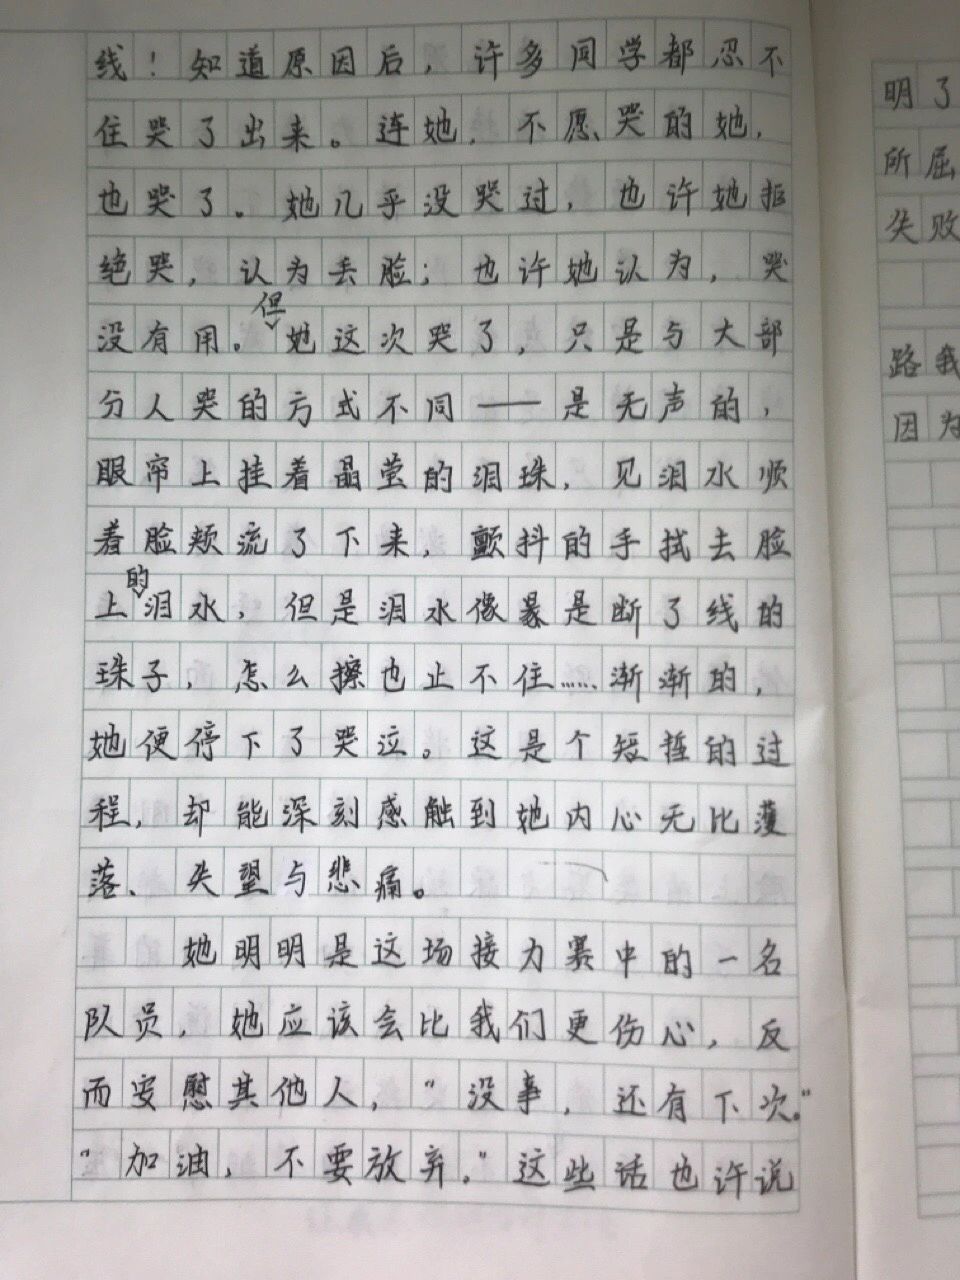 线！知道原因后，许多同学都忍不
住哭了出来。连她，不愿哭的她，
也哭了。她几乎没哭过，也许她拒
绝哭，认为丢脸；也许她认为，哭
没有用。但她这次哭了，只是与大部
分人哭的方式不同——是无声的，
眼帘上挂着晶莹的泪珠，见泪水顺
着脸颊流了下来，颤抖的手拭去脸
上的泪水，但是泪水像是断了线的
珠子，怎么擦也止不住……渐渐的，
她便停下了哭泣。这是个短暂的过
程，却能深刻感触到她内心无比
落、失望与悲痛。
她明明是这场接力赛中的一名
队员，她应该会比我们更伤心，反
而安慰其他人，“没事，还有下次。”
“加油，不要放弃。”这些话也许说
明了
所屈
失败
路我
因为